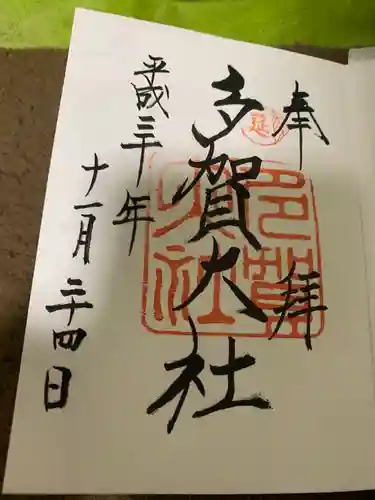 奉拝
延
多賀大社
平成三十年
十一月二十四日